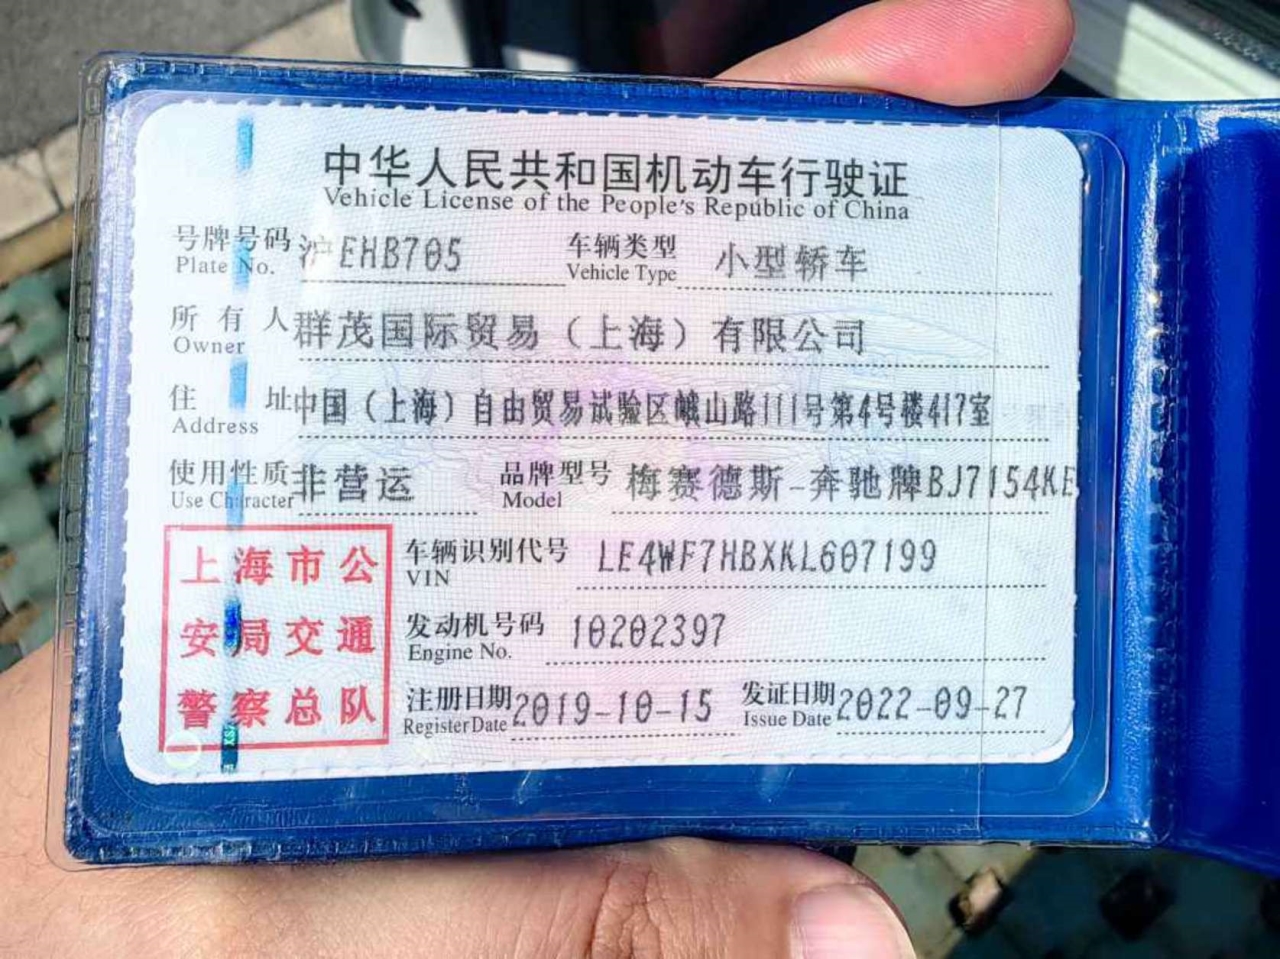 中华人民共和国机动车行驶证
Vehicle License of the People's Republic of China
号牌号码 沪EHB705 车辆类型 小型轿车
Plate No. Vehicle Type
所有人 群茂国际贸易（上海）有限公司
Owner
住址 中国（上海）自由贸易试验区峨山路111号第4号楼417室
Address
使用性质 非营运 品牌型号 梅赛德斯-奔驰牌BJ7154KE
Use Character Model
上海市公
安局交通
警察总队
车辆识别代号 LE4WF7HBXKL607199
VIN
发动机号码 10202397
Engine No.
注册日期 2019-10-15 发证日期 2022-09-27
Register Date Issue Date